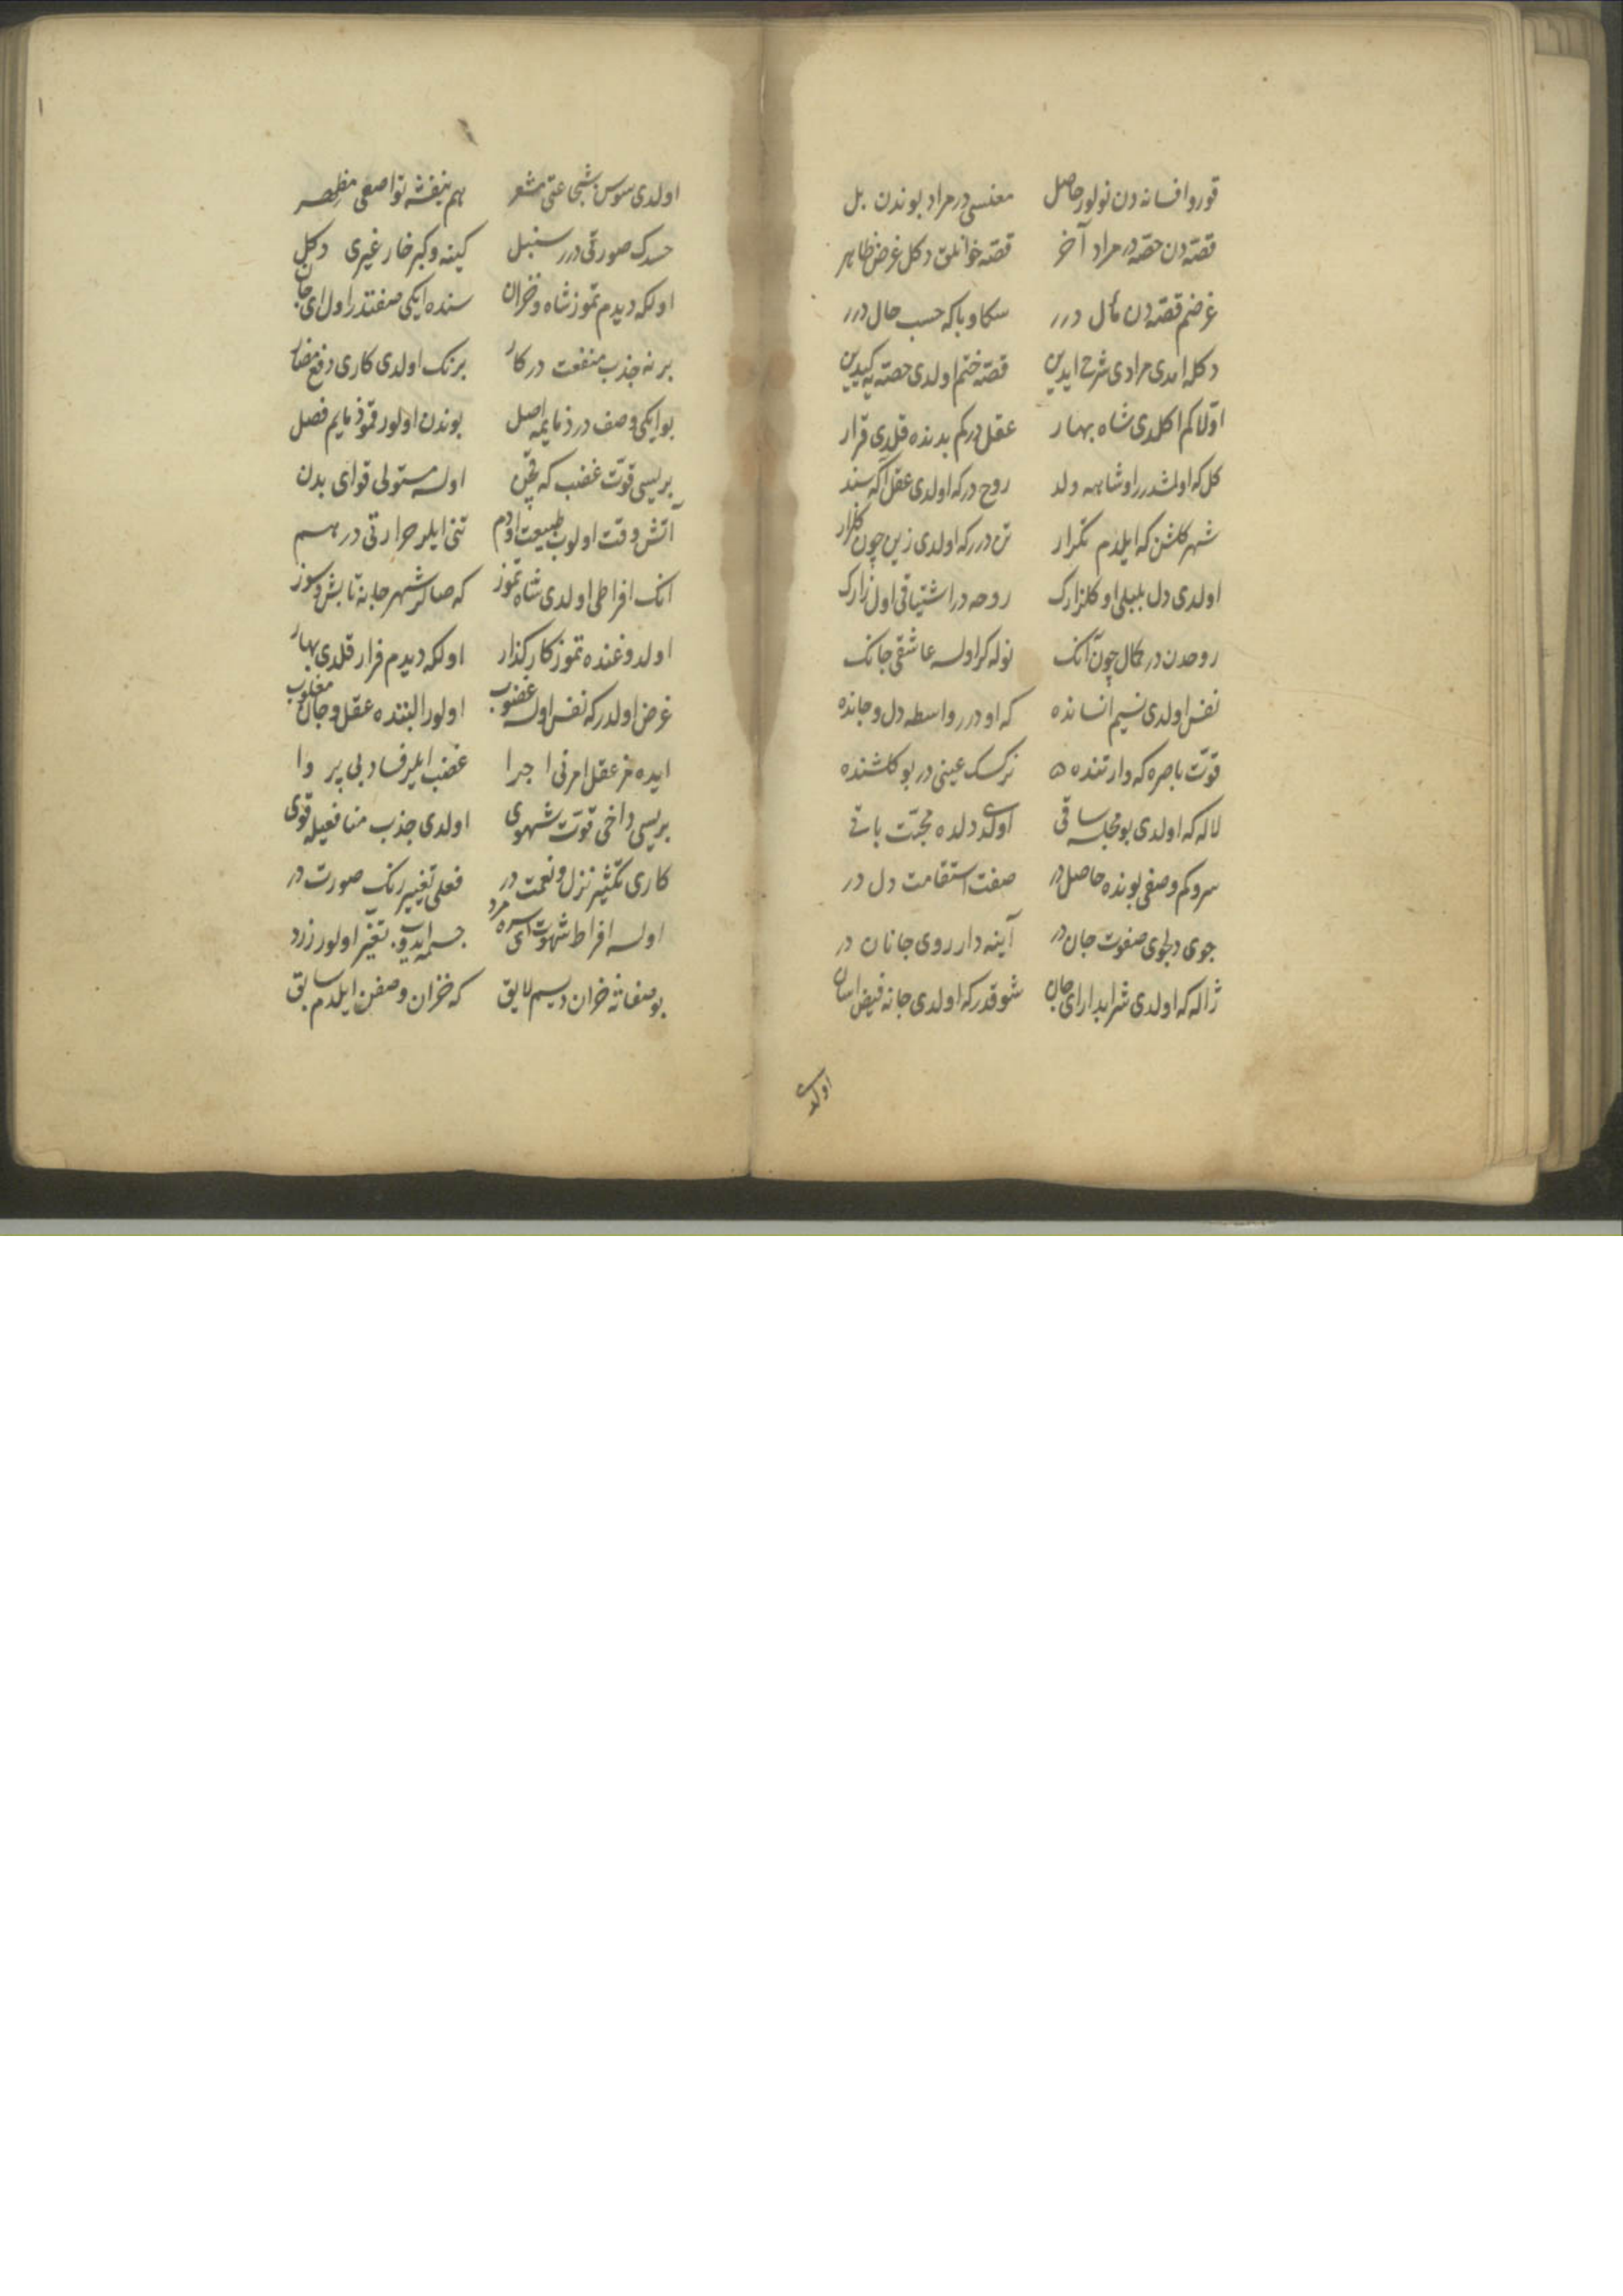 قورو افسانه دن نولور حاصل معنیسی در مراد بوندن بل
قصه دن حصه در مراد آخر قصه خوانلق دکل غرض ظاهر
غرضم قصه دن مآل درر سکا و باکه حسب حال درر
دکله امدی مرادی شرح ایدین قصه ختم اولدی حصه یه کیدین
اولا کم اکلدی شاه بهار عقل درکم بدنده قلدی قرار
کل که اولشدر اول شاهه ولد روح درکه اولدی عقل اکه سند
شهر کلشن که ایلدم تکرار تن دررکه اولدی زین چون کلزار
اولدی دل بلبلی او کلزارک روحه در اشتیاقی اول زارک
روحدن در کمال چون آنک نوله کر اولسه عاشقی جانک
نفس اولدی نسیم انسانده که او درر واسطه دل و جانده
قوت باصره که وار تنده نرکسک عینی در بو کلشنده
لاله که اولدی بو مجلسه ساقی اولدی دلده محبت باقی
سروکم وصفی بونده حاصل در صفت استقامت دل در
جوی دلجوی صفوت جان در آینه دار روی جانان در
ژاله که اولدی شرابدار ای جان شوقدرکه اولدی جانه فیض اسان
اولدی
اولدی سوسن شجاعتی مشعر هم بنفشه تواضعی مظهر
حسدک صورتی درر سنبل کینه و کبر خار غیری دکل
اولکه دیدم تموز شاه و خزان سنده ایکی صفتدر اول ای جان
برنه جذب منفعت در کار برنک اولدی کاری دفع مضار
بو ایکی وصف در ذمایمه اصل بوندن اولور قمو ذمایم فصل
بریسی قوت غضب که قچن اولسه مستولی قوای بدن
آتش وقت اولوب طبیعت اودم تنی ایلر حرارتی درهم
انک افراطی اولدی شاه تموز که صالر شهر جانه تابش و سوز
اولدوغنده تموز کار کذار اولکه دیدم فرار قلدی بهار
غرض اولدرکه نفس اولسه غضوب اولور البته عقل و جان مغلوب
ایده مز عقل امرنی اجرا غضب ایلر فساد بی پروا
بریسی داخی قوت شهوی اولدی جذب منافعیله قوی
کاری تکثیر نزل و نعمت در فعلی تغییر رنک صورت در
اولسه افراط شهوت ای سره مرد جسم ایدوب تغیر اولور زرد
بو صفاته خزان دیسم لایق که خزان وصفن ایلدم سابق